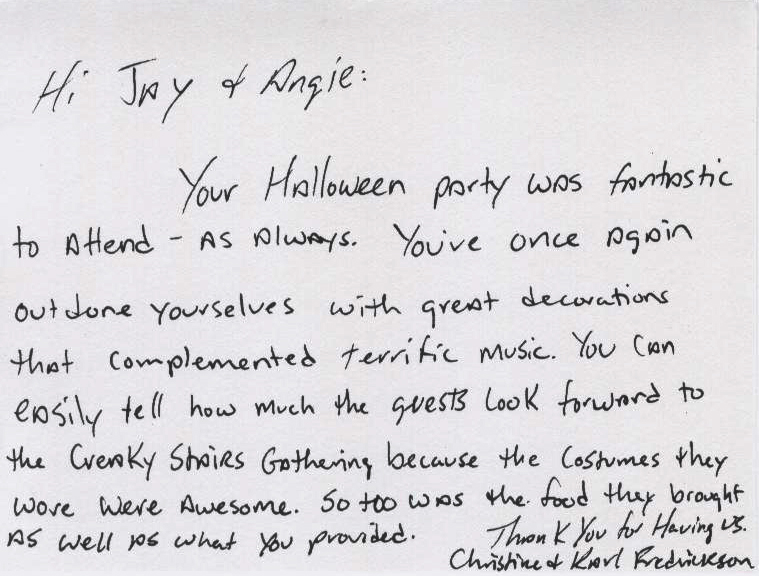 Hi Jay & Angie:
Your Halloween party was fantastic
to attend - as always. You've once again
outdone yourselves with great decorations
that complemented terrific music. You can
easily tell how much the guests look forward to
the Creaky Stairs Gathering because the costumes they
wore were awesome. So too was the food they brought
as well as what you provided. Thank You for Having us.
Christine & Karl Fredrickson